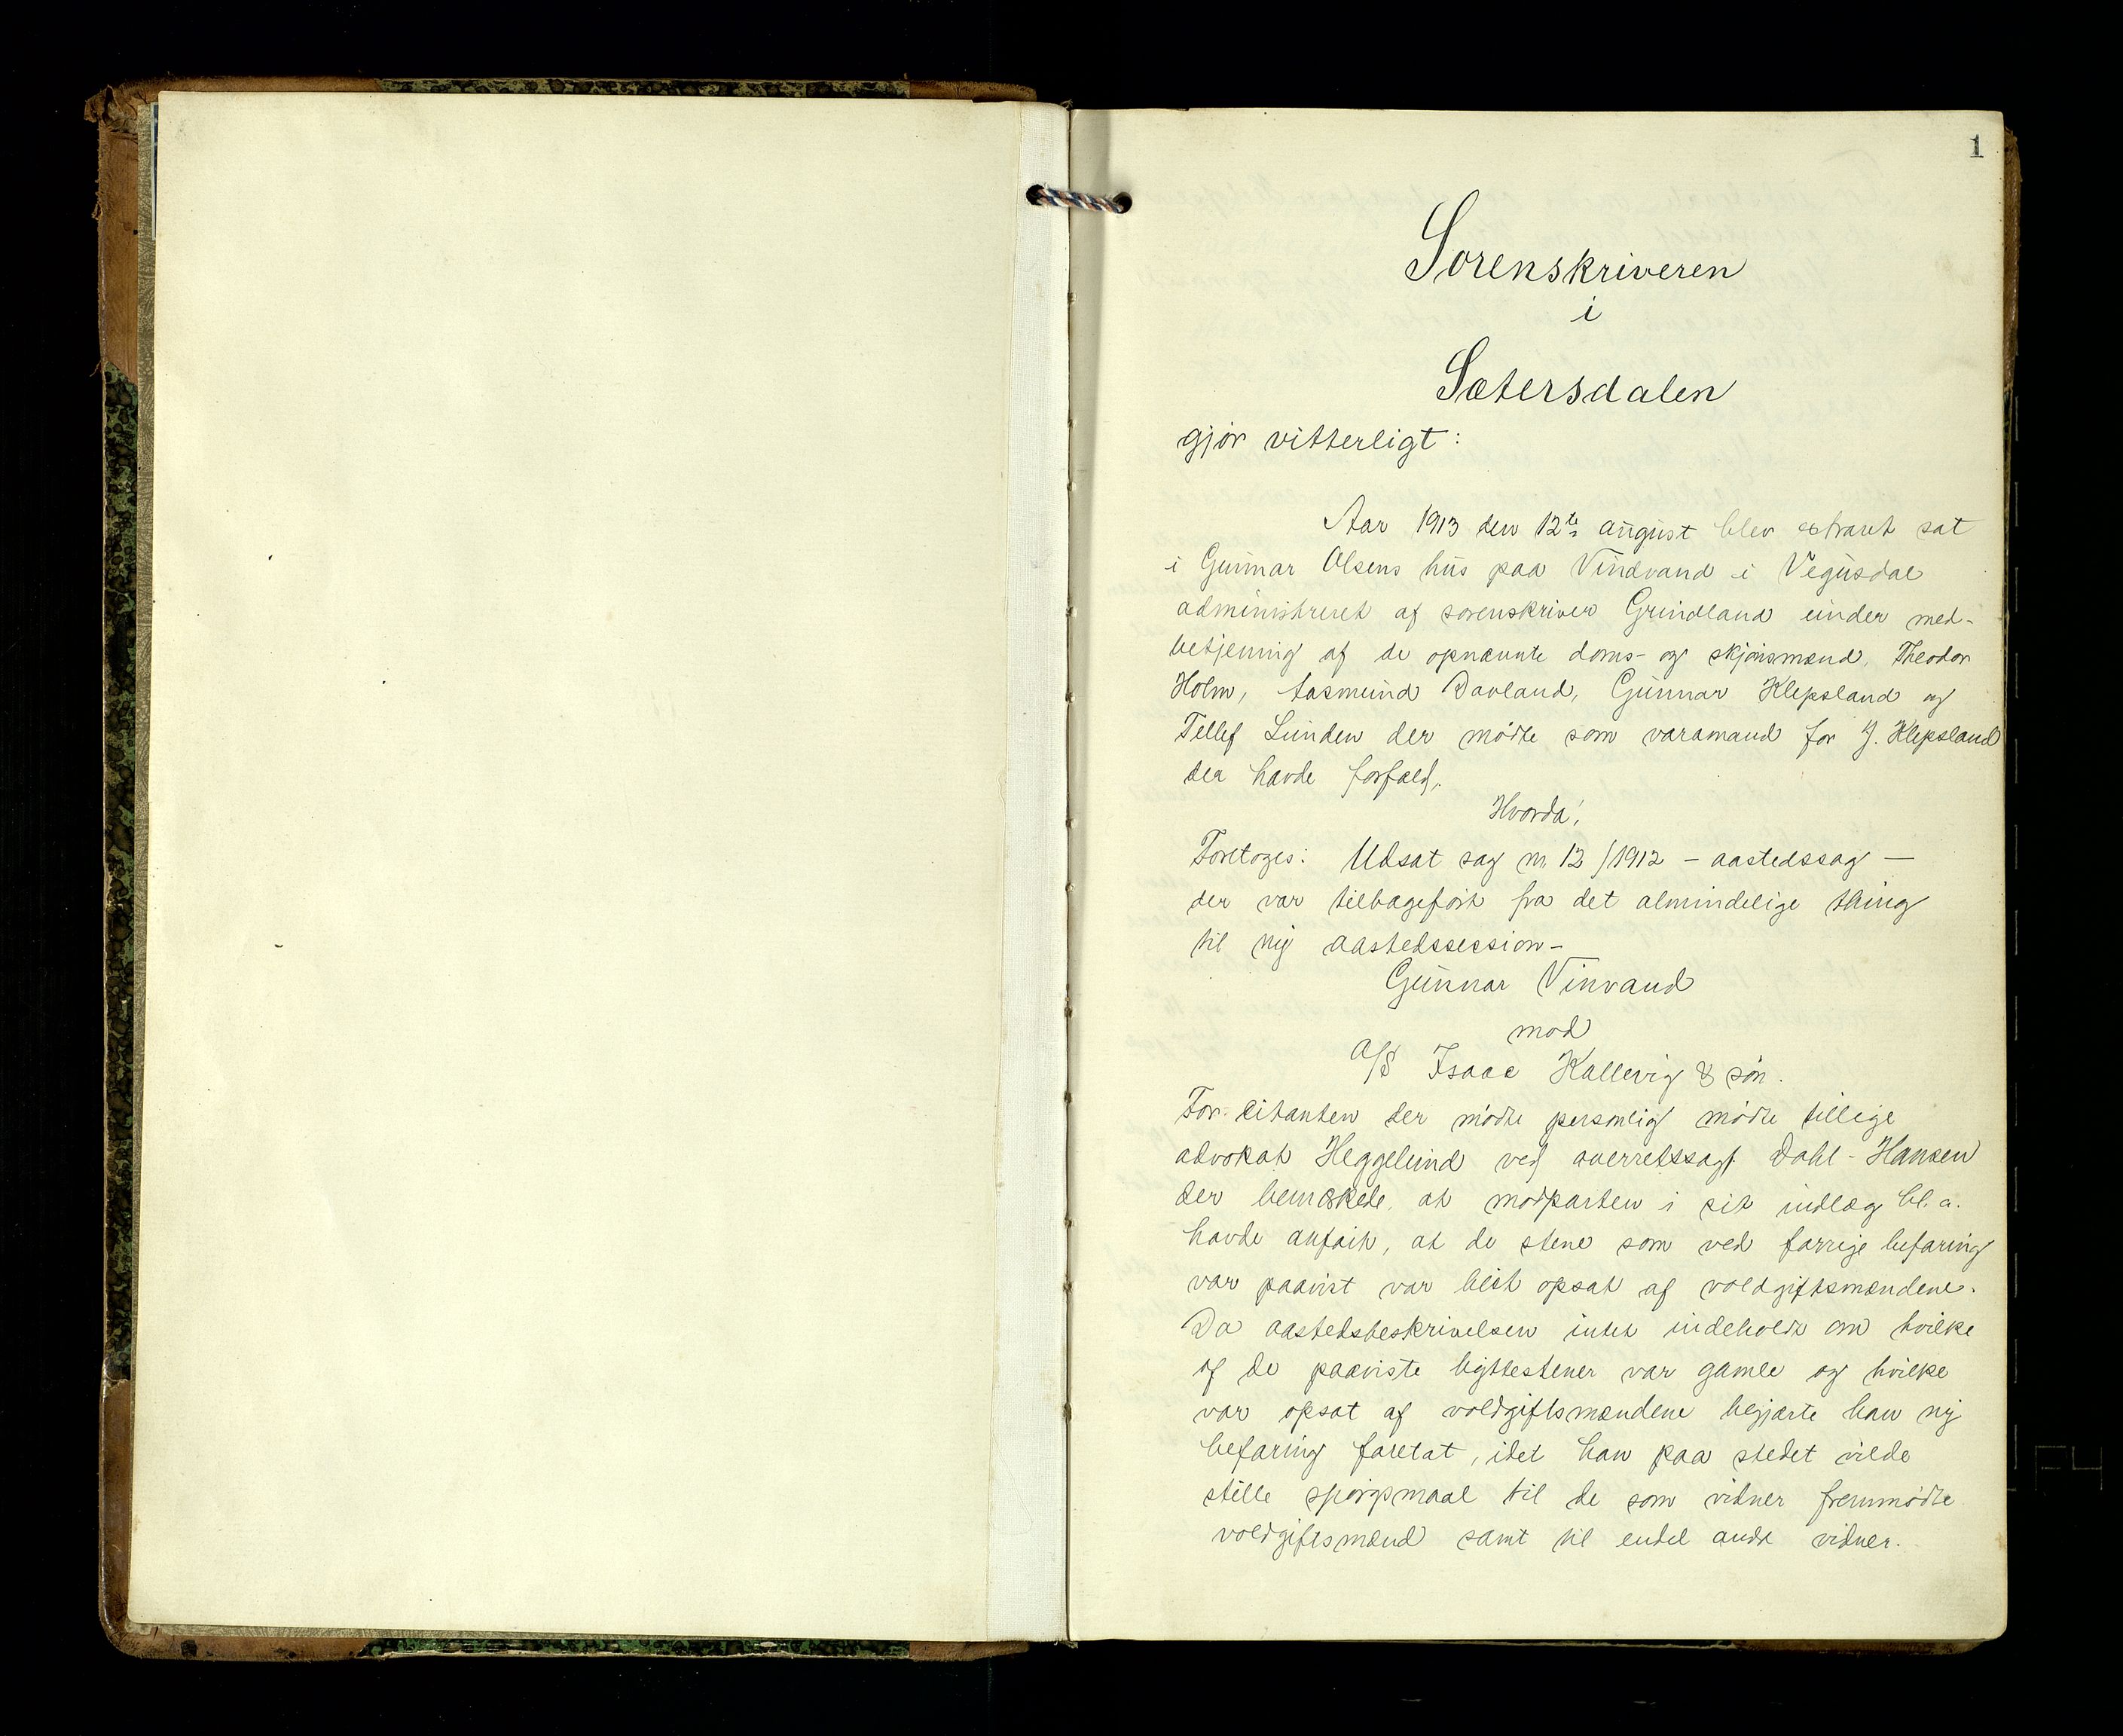 1
Sorenskriveren
i
Sætersdalen
gjør vitterligt:
Aar 1913 den 12te august blev extraret sat
i Gunnar Olsens hus paa Vindvand i Vegusdal
administreret af sorenskriver Grindland under med-
betjening af de opnævnte doms- og skjønsmænd, Theodor
Holm, Aasmund Davland, Gunnar Klepsland og
Tellef Lunden der mødte som varamand for J. Klepsland
der havde forfald,
Hvorda!
Foretoges: Udsat sag nr 12/1912 – aastedssag –
der var tilbageført fra det almindelige thing
til ny aastedssession –
Gunnar Vinvand
mod
A/S Isaac Kallevig & søn.
For citanten der mødte personlig mødte tillige
advokat Heggelund ved overretssagf. Dahl-Hansen
der bemærkede, at modparten i sit indlæg bl.a.
havde anført, at de stene som ved forrige befaring
var paavist var blit opsat af voldgiftsmændene.
Da aastedsbeskrivelsen intet indeholdt om hvilke
af de paaviste byttestener var gamle og hvilke
var opsat af voldgiftsmændene begjærte han ny
befaring foretat, idet han paa stedet vilde
stille spørgsmaal til de som vidner fremmødte
voldgiftsmænd samt til endel andre vidner.